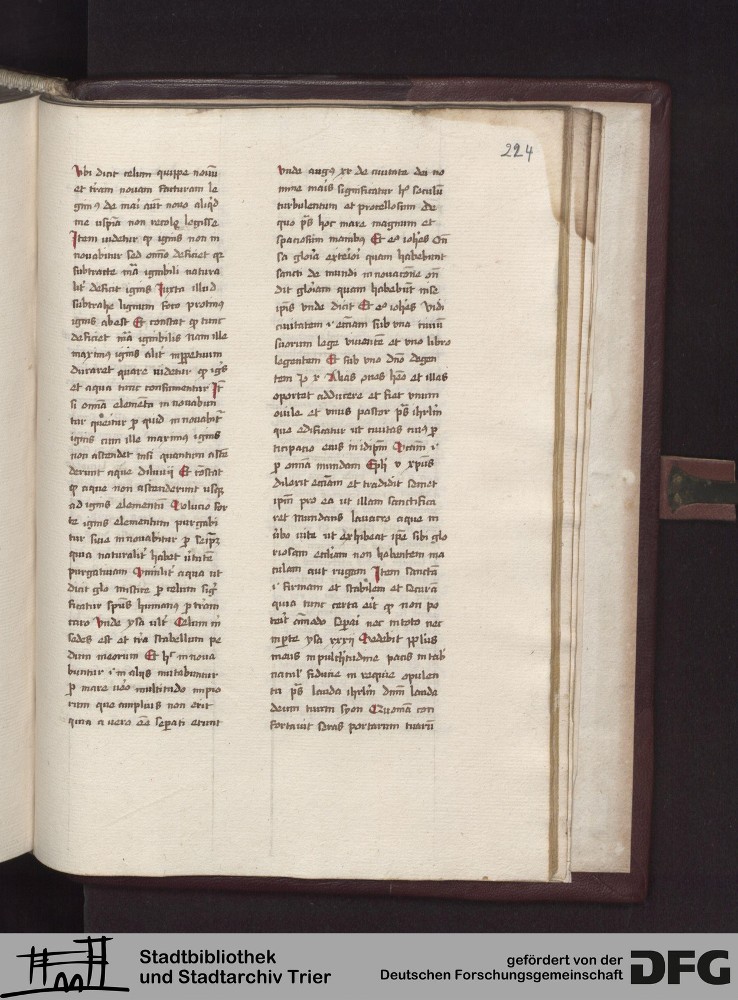 224
Vbi dicit celum quippe nouū
et tram nouam futuram le
gimꝰ de mari aūt nouo aliqͥd
me uspiā non recolo legisse
Item uidetur ꝙ ignis non in
nouabitur sed omīo deficiet qꝛ
subtracta mā ignibili natura
lit̄ deficit ignis Iuxta illud
subtrahe lignum foco protinꝰ
ignis abest Et constat ꝙ tunc
deficiet mā ignibilis nam ille
maximꝰ ignis alit̄ inppetuum
duraret quare uidetur ꝙ igīs
et aqua tunc consumentur It̄
si omīa elementa innouabun
tur querit̄ur ꝑ quid innouabit̄
ignis cum ille maximꝰ ignis
non ascendet nisi quantum asce
derunt aque diluuij Et cōstat
ꝙ aque non ascenderunt usqꝫ
ad ignis elementū Solucio for
te ignis elementum purgabi
tur siue innouabitur ꝑ seipꝫ
quia naturalit̄ habet uirtutē
purgatiuam aqua ut
dicit glo mistice ꝑ celum sigͥ
ficatur spūs humanꝰ ꝑ tram
caro Vnde ysa ult̄ Celum m̄
sedes est et trā scabellum pe
dum meorum Et hͦ innoua
buntur in alijs mutabuntur
ꝑ mare uō multitudo impio
rum que amplius non erit
quia a uero eē sepati erunt
Vnde augꝰ xx de ciuitate dei no
mine maris significatur hͦ seculū
turbulentum et procellosum de
quo pͦs hoc mare magnum et
spaciosum manibꝰ Et eͦ iohēs
sa gloīa exteriori quam habebunt
sancti de mundi innouacōne
dit gloīam quam habebūt inse
ipīs vnde dicit Et eͦ iohēs vidi
ciuitatem
sctorum lege viuentē et vno libro
legentem Et sub vno dn̄o degen
tem Jo x Alias oues hēo et illas
oportet adducere et fiet vnum
ouile et vnus pastor pͦs ihrlm̄
que edificatur ut ciuitas cuiꝰ ꝑ
ticipacio eius in idipm̄ Sctam
ꝑ omīa mundam Eph v xpūs
dilexit ecciam et tradidit semet
ipm̄ pro ea ut illam sanctifica
ret mundans lauacro aque in
ūbo uite ut exhiberet ipē sibi glo
riosam eccliam non habentem ma
culam aut rugam Item sanctā
firmam et stabilem et securā
quia tunc certa erit ꝙ non po
terit amodo separi nec intoto nec
inparte ysa xxxij Sedebit ꝓplūs
meus in pulchitudine pacis in tab̄
naculͥ fiducie in requie opulen
ta pͦs lauda ihrlm̄ dnm̄ lauda
deum tuum syon Quoniā con
fortauit seras portarum tuarū
Stadtbibliothek
und Stadtarchiv Trier
gefördert von der
Deutschen Forschungsgemeinschaft
DFG